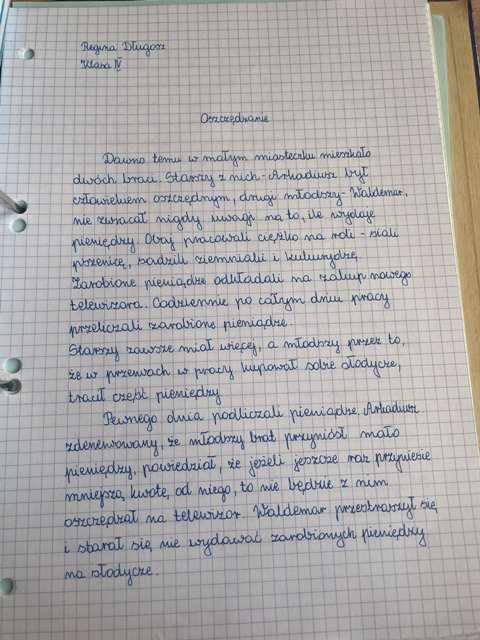 Regina Długosz
Klasa IV
Oszczędzanie
Dawno temu w małym miasteczku mieszkało
dwóch braci. Starszy z nich - Arkadiusz był
człowiekiem oszczędnym, drugi młodszy - Waldemar,
nie zwracał nigdy uwagi na to, ile wydaje
pieniędzy. Obaj pracowali ciężko na roli - siali
pszenicę, sadzili ziemniaki i kukurydzę.
Zarobione pieniądze odkładali na zakup nowego
telewizora. Codziennie po całym dniu pracy
przeliczali zarobione pieniądze.
Starszy zawsze miał więcej, a młodszy przez to,
że w przerwach w pracy kupował sobie słodycze,
tracił część pieniędzy.
Pewnego dnia podliczali pieniądze, Arkadiusz
zdenerwowany, że młodszy brat przyniósł mało
pieniędzy, powiedział, że jeżeli jeszcze raz przyniesie
mniejszą kwotę, od niego, to nie będzie z nim
oszczędzał na telewizor. Waldemar przestraszył się
i starał się nie wydawać zarobionych pieniędzy
na słodycze.